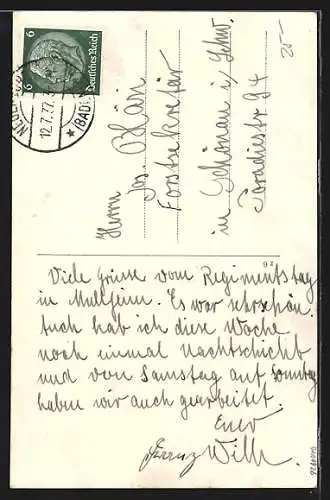 6 Deutsches Reich 6
(BADEN)
12.7.37.
25-
Herrn
Jos. Bläsi
Forstsekretär
in Schönau i/ Schw.
Paradiesstr 94
92
Viele Grüsse vom Regimentstag
in Mullheim. Es war sehr schön.
Auch hab ich diese Woche
noch einmal Nachtschicht
und von Samstag auf Sonntag
haben wir auch gearbeitet.
Euer
Franz Willi